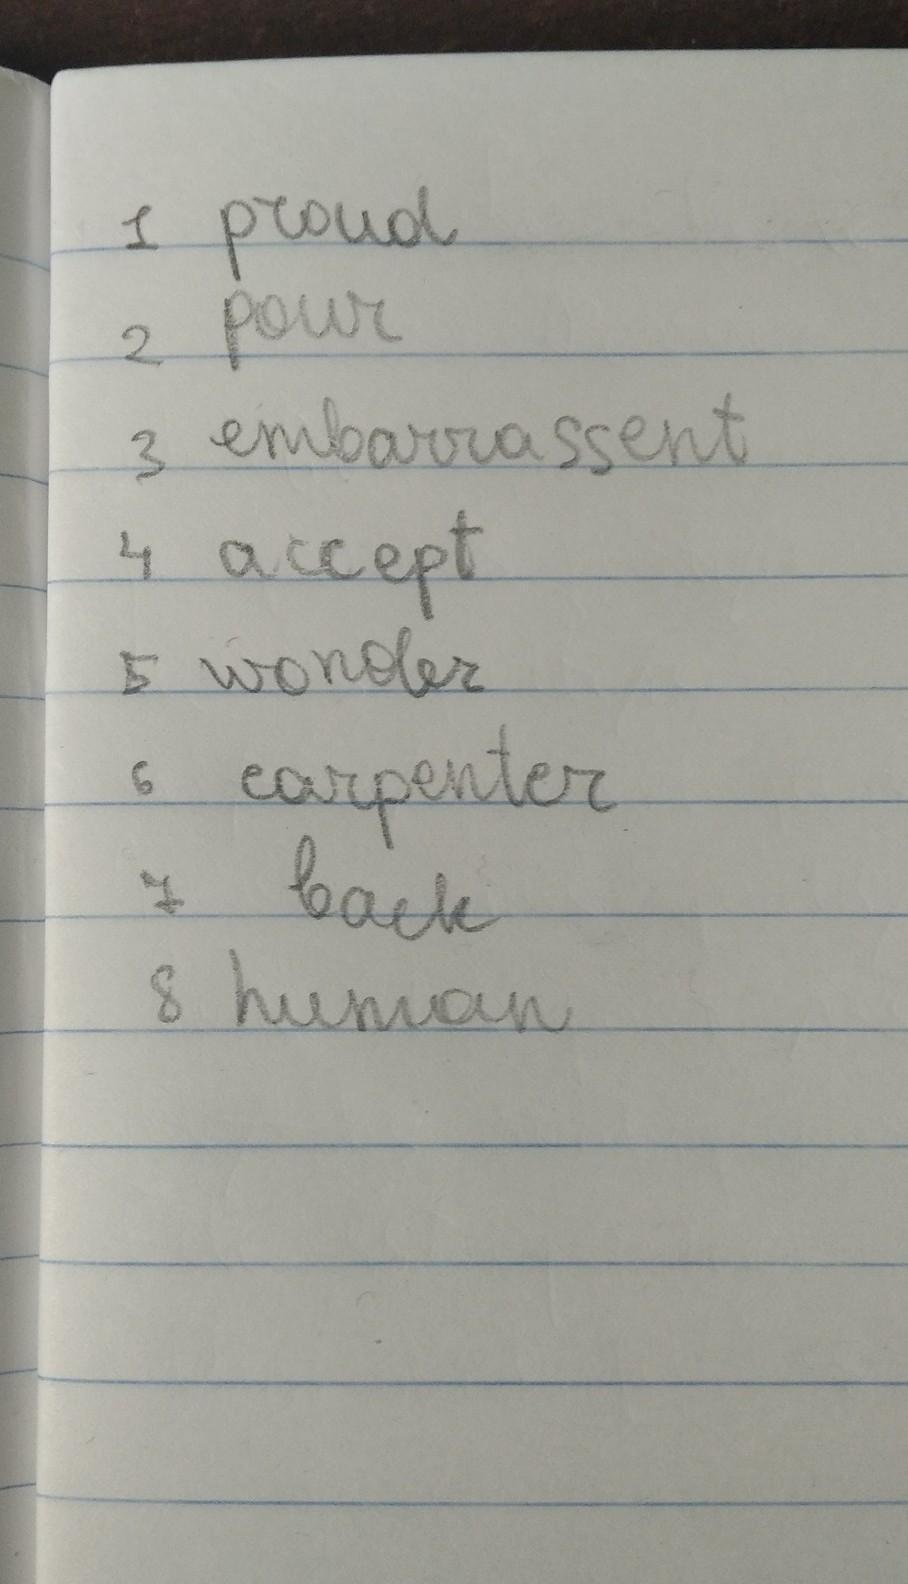 1 proud
2 pour
3 embarrassent
4 accept
5 wonder
6 carpenter
7 back
8 human